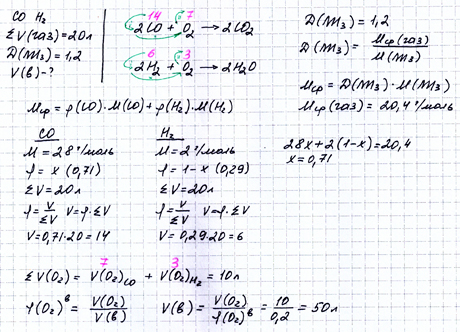 CO H₂
ΣV(газ)=20л
D(NH₃)=1,2
V(в)-?
14 7
2CO + O₂ → 2CO₂
6 3
2H₂ + O₂ → 2H₂O
D(NH₃)=1,2
D(NH₃) = Mср(газ)/M(NH₃)
Mср = D(NH₃)·M(NH₃)
Mср(газ) = 20,4 г/моль
Mср = φ(CO)·M(CO)+φ(H₂)·M(H₂)
28x+2(1-x)=20,4
x=0,71
CO
M=28 г/моль
φ = x (0,71)
ΣV=20л
φ=V/ΣV V=φ·ΣV
V=0,71·20=14
H₂
M=2 г/моль
φ=1-x (0,29)
ΣV=20л
φ=V/ΣV V=φ·ΣV
V=0,29·20=6
7 3
ΣV(O₂) = V(O₂)CO + V(O₂)H₂ = 10л
φ(O₂)ᵇ = V(O₂)/V(в) V(в) = V(O₂)/φ(O₂)ᵇ = 10/0,2 = 50л